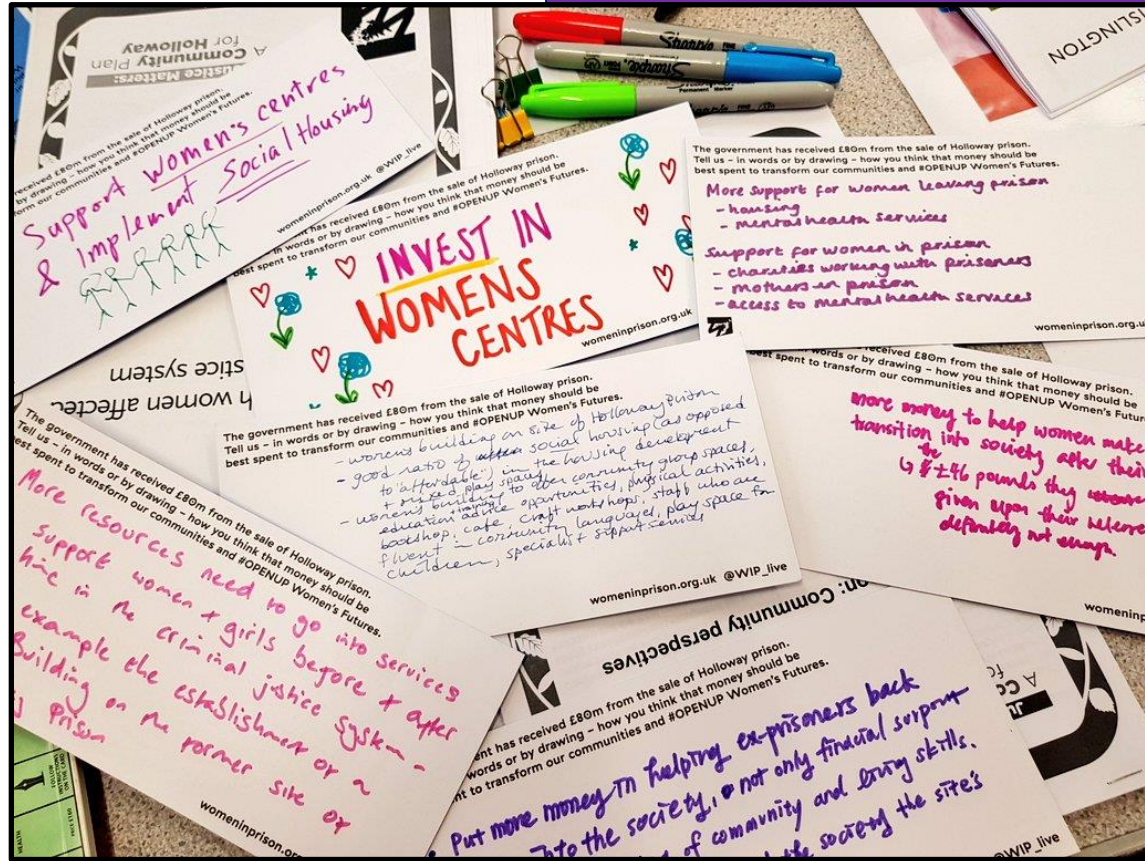 Justice Matters:
A Community Plan
for Holloway
ISLINGTON
received £80m from the sale of Holloway prison.
by drawing – how you think that money should be
form our communities and #OPENUP Women's Futures.
Support women's centres
& implement Social Housing
womeninprison.org.uk @WIP_live
ent has received £80m from the sale of Holloway prison.
in words or by drawing – how you think that money should be
best spent to transform our communities and #OPENUP Women's Futures.
INVEST IN
WOMENS
CENTRES
womeninprison.org.uk
The government has received £80m from the sale of Holloway prison.
Tell us – in words or by drawing – how you think that money should be
best spent to transform our communities and #OPENUP Women's Futures.
More support for women leaving prison
- housing
- mental health services
Support for women in prison
- charities working with prisoners
- mothers in prison
- access to mental health services
womeninprison.org.u
h women affected
stice system
The government has received £80m from the sale of Holloway prison.
Tell us – in words or by drawing – how you think that money should be
best spent to transform our communities and #OPENUP Women's Futures.
- womens building on site of Holloway Prison
- good ratio of social housing (as opposed
to 'affordable') in the housing development
+ mixed play spaces
- women's building to offer community group spaces,
education + training advice opportunities, physical activities,
bookshop, cafe, craft workshops, staff who are
fluent in community languages, play space for
children, specialist support services
womeninprison.org.uk @WIP_live
ceived £80m from the sale of Holloway prison.
words or by drawing – how you think that money should be
best spent to transform our communities and #OPENUP Women's Futur
more money to help women make
transition into society after their
↳ the £46 pounds they
given upon their release
definitely not enough.
womeninp
The government has received £80m from the sale of Holloway prison.
Tell us – in words or by drawing – how you think that money should be
est spent to transform our communities and #OPENUP Women's Futures.
More resources need to go into services
support women + girls before + after
time in the criminal justice system -
example the establishment of a
Building on the former site of
y Prison
womeninprison.or
on: Community perspectives
ent has received £80m from the sale of Holloway prison.
words or by drawing – how you think that money should be
nt to transform our communities and #OPENUP Women's Futures.
Put more money in helping ex-prisoners back
into the society, not only finacial surport
of community and living skills.
society the site's
@WIP_live
FOLLOW
INSTRUCTIONS
ON THE CARD